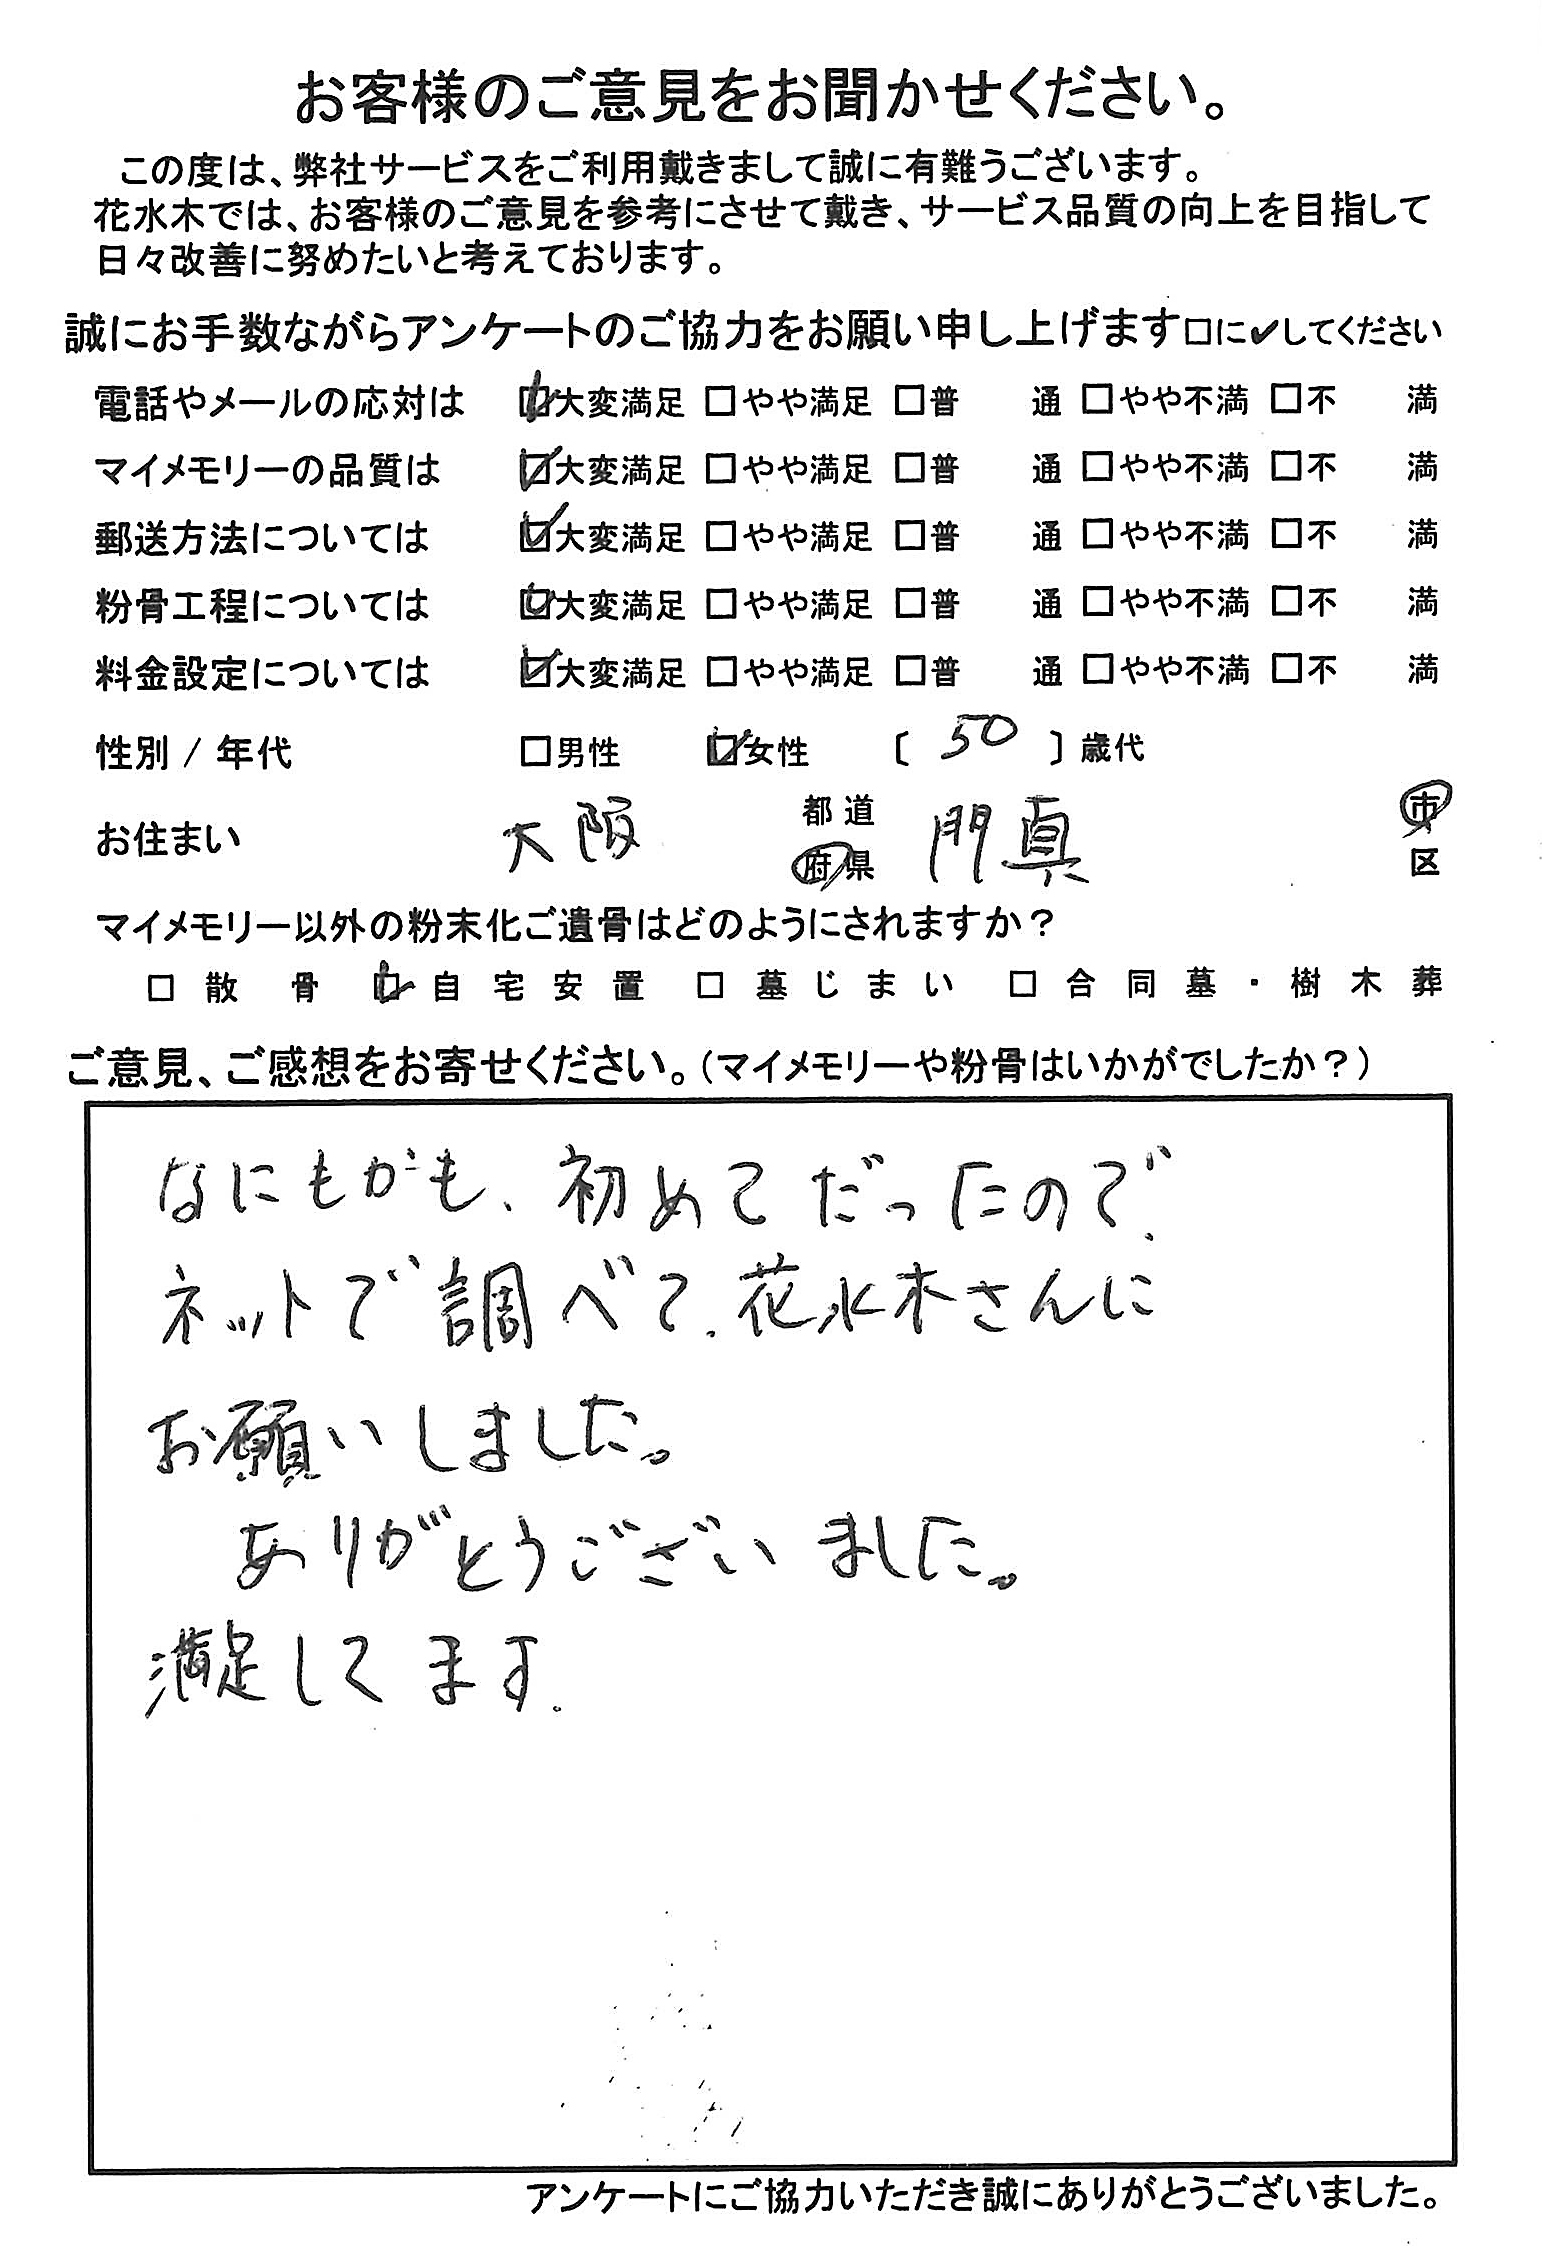 お客様のご意見をお聞かせください。
この度は、弊社サービスをご利用戴きまして誠に有難うございます。
花水木では、お客様のご意見を参考にさせて戴き、サービス品質の向上を目指して
日々改善に努めたいと考えております。
誠にお手数ながらアンケートのご協力をお願い申し上げます□に✔してください
電話やメールの応対は ☑大変満足 □やや満足 □普 通 □やや不満 □不 満
マイメモリーの品質は ☑大変満足 □やや満足 □普 通 □やや不満 □不 満
郵送方法については ☑大変満足 □やや満足 □普 通 □やや不満 □不 満
粉骨工程については ☑大変満足 □やや満足 □普 通 □やや不満 □不 満
料金設定については ☑大変満足 □やや満足 □普 通 □やや不満 □不 満
性別 / 年代 □男性 ☑女性 〔 50 〕歳代
お住まい 大阪 都道府県 門真 市区
マイメモリー以外の粉末化ご遺骨はどのようにされますか？
□ 散骨 ☑ 自宅安置 □ 墓じまい □ 合同墓・樹木葬
ご意見、ご感想をお寄せください。（マイメモリーや粉骨はいかがでしたか？）
なにもかも、初めてだったので、
ネットで調べて、花水木さんに
お願いしました。
ありがとうございました。
満足してます。
アンケートにご協力いただき誠にありがとうございました。